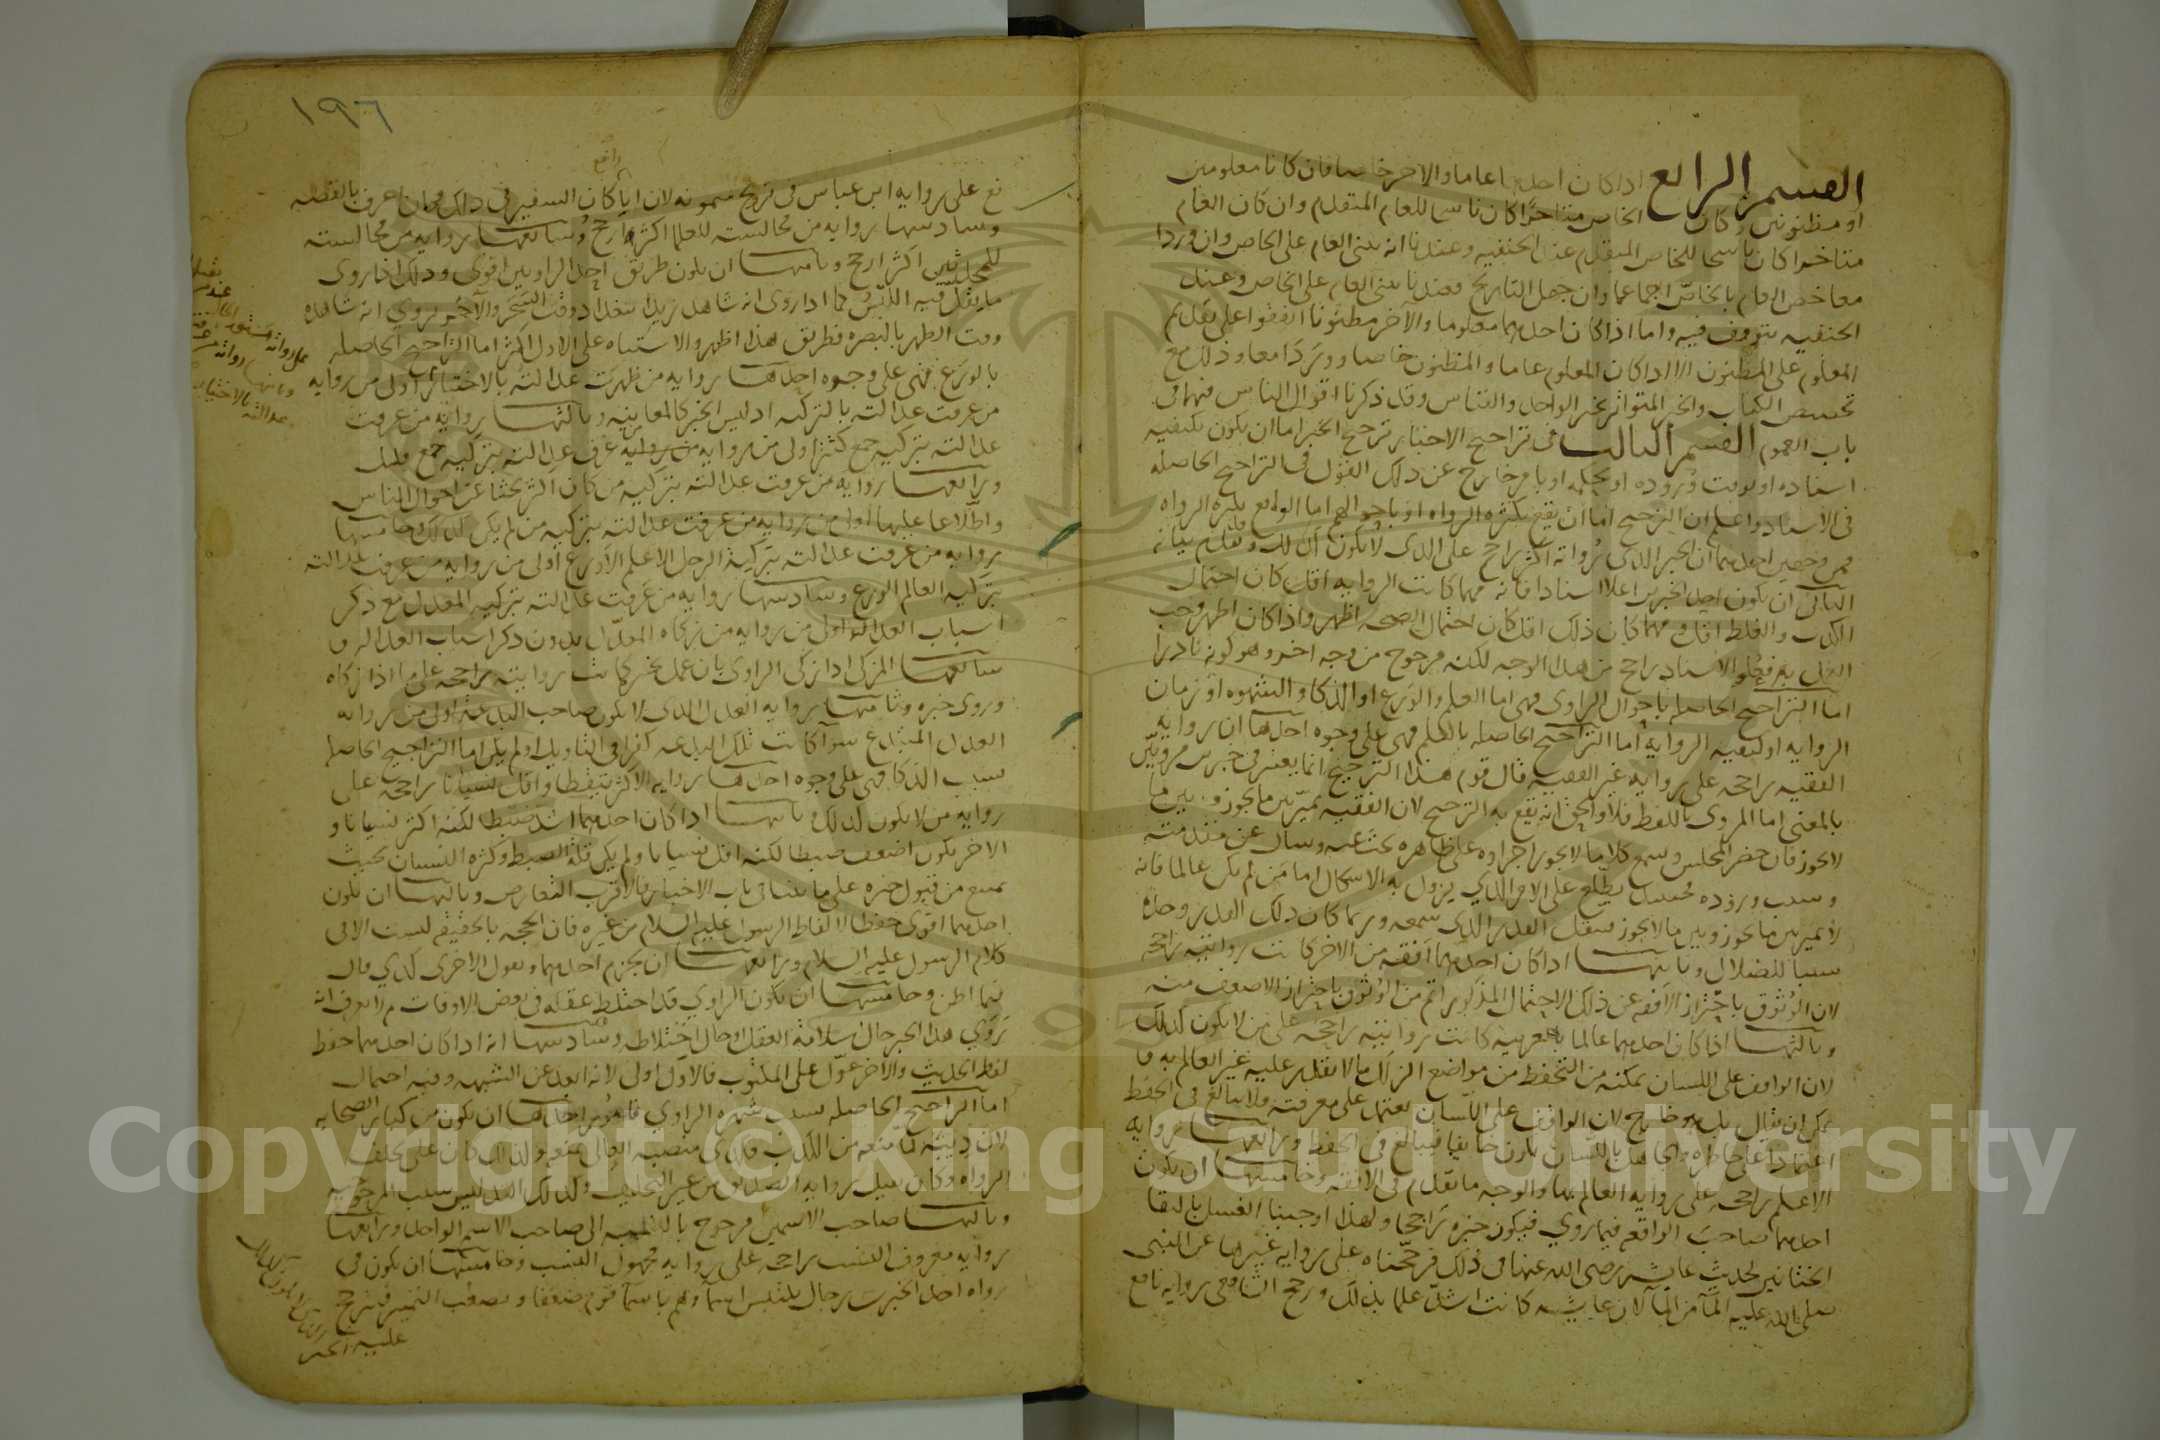 القسم الرابع اذا كان احدهما عاما والاخر خاصا فان كانا معلومين
او مظنونين وكان الخاص متاخرا كان ناسخا للعام المتقدم وان كان العام
متاخرا كان ناسخا للخاص المتقدم عند الحنفيه وعندنا انه يبنى العام على الخاص وان وردا
معا خص العام بالخاص اجماعا وان جهل التاريخ فعندنا يبنى العام على الخاص وعند
الحنفيه يتوقف فيه واما اذا كان احدهما معلوما والآخر مظنونا اتفقوا على تقديم
المعلوم على المظنون الا اذا كان المعلوم عاما والمظنون خاصا ووردا معا وذلك مع
تخصيص الكتاب والخبر المتواتر بخبر الواحد والقياس وقد ذكرنا اقوال الناس فيهما في
باب العموم القسم الثالث في تراجيح الاخبار ترجيح الخبر اما ان يكون بكيفيه
اسناده او بوقت وروده او بحكمه او بامر خارج عن ذلك القول في التراجيح الحاصله
في الاسناد واعلم ان الترجيح اما ان يقع بكثره الرواه او باحوالهم اما الواقع بكثره الرواه
فمن وجهين احدهما ان الخبر الذي رواته اكثر راجح على الذي لا يكون كذلك وتقدم بيانه
الثاني ان يكون احد الخبرين اعلا اسنادا فانه مهما كانت الرواية اقل كان احتمال
الكذب والغلط اقل ومهما كان ذلك اقل كان احتمال الصحه اظهر واذا كان اظهر وجب
العمل به فعلو الاسناد راجح من هذا الوجه لكنه مرجوح من وجه اخر وهو كونه نادرا
اما التراجيح الحاصله باحوال الراوي فهي اما العلم والورع او الذكا والشهره او زمان
الروايه او كيفيه الروايه اما التراجيح الحاصله بالعلم فهي على وجوه احدها ان روايه
الفقيه راجحه على روايه غير الفقيه قال قوم هذا الترجيح انما يعتبر في خبرين مرويين
بالمعنى اما المروي باللفظ فلا والحق انه يقع به الترجيح لان الفقيه يميز بين ما يجوز وبين ما
لا يجوز فان حضر المجلس وسمع كلاما لا يجوز اجراؤه على ظاهره بحث عنه وسال عن مقدمته
وسبب وروده فحينئذ يطلع على الامر الذي يزول به الاشكال اما من لم يكن عالما فانه
لا يميز بين ما يجوز وبين ما لا يجوز فينقل القدر الذي سمعه وربما كان ذلك القدر وحده
سببا للضلال وثانيها اذا كان احدهما افقه من الاخر كانت روايته راجحه
لان الوثوق باحتراز الافقه عن ذلك الاحتمال المذكور اتم من الوثوق باحتراز الاضعف منه
وثالثها اذا كان احدهما عالما بالعربيه كانت روايته راجحه على من لا يكون كذلك
لان الواقف على اللسان يمكنه من التحفظ من مواضع الزلل ما لا يقدر عليه غير العالم به و
يمكن ان يقال بل هو مرجوح لان الواقف على اللسان يعتمد على معرفته فلا يبالغ في الحفظ
اعتمادا على خاطره والجاهل باللسان يكون خايفا فيبالغ في الحفظ ورابعها روايه
الاعلم راجحه على روايه العالم بها والوجه ما تقدم في الافقه وخامسها ان يكون
احدهما صاحب الواقعه فيما روي فيكون خبره راجحا ولهذا اوجبنا الغسل بالتقا
الختانين لحديث عايشه رضي الله عنها في ذلك فرجحناه على روايه غيرها عن النبي
صلى الله عليه الماء من الماء لان عايشه كانت اشد علما بذلك ورجح الشافعي روايه نافع
١٩٦
رافع
فع على روايه ابن عباس في تزويج ميمونه لان ابا كان السفير في ذلك فكان اعرف بالقصه
وسادسها روايه من مجالسته للعلما اكثر ارجح وسابعها روايه من مجالسته
للمحدثين اكثر ارجح وثامنها ان يكون طريق احد الراويين اقوى وذلك اذا روى
ما يقل فيه اللبس كما اذا روى انه شاهد زيدا ببغداد وقت السحر والآخر يروي انه شاهده
وقت الظهر بالبصره فطريق هذا اظهر والاشتباه على الاول اكثر اما التراجيح الحاصله
بالورع فهي على وجوه احدها روايه من ظهرت عدالته بالاختبار اولى من روايه
من عرفت عدالته بالتزكيه اذ ليس الخبر كالمعاينه وثالثها روايه من عرفت
عدالته بتزكيه جمع كثير اولى من روايه من عرف عدالته بتزكيه جمع قليل
ورابعها روايه من عرفت عدالته بتزكيه من كان اكثر بحثا عن احوال الناس
واطلاعا عليها اولى من روايه من عرفت عدالته بتزكيه من لم يكن كذلك وخامسها
روايه من عرفت عدالته بتزكيه الرجل الاعلم الاورع اولى من روايه من عرفت عدالته
بتزكيه العالم الورع وسادسها روايه من عرفت عدالته بتزكيه المعدل مع ذكر
اسباب العداله اولى من روايه من زكاه المعدل بدون ذكر اسباب العداله و
سابعها المزكي اذا زكى الراوي بان عمل بخبره كانت روايته راجحه على ما اذا زكاه
وروى خبره وثامنها روايه العدل الذي لا يكون صاحب البدعه اولى من روايه
العدل المبتدع سوآ كانت تلك البدعه كفرا في التاويل او لم يكن اما التراجيح الحاصله
بسبب الذكا فهي على وجوه احدها روايه الاكثر تيقظا واقل نسيانا راجحه على
روايه من لا يكون كذلك وثانيها اذا كان احدهما اشد ضبطا لكنه اكثر نسيانا و
الاخر يكون اضعف ضبطا لكنه اقل نسيانا ولم يكن قلة الضبط وكثره النسيان بحيث
تمنع من قبول خبره على ما بينا في باب الاخبار فالاقرب التعارض وثالثها ان يكون
احدهما اقوى حفظا لالفاظ الرسول عليه السلام من غيره فان الحجه بالحقيقه ليست الا في
كلام الرسول عليه السلام ورابعها ان يجزم احدهما ويقول الاخر كذي قال
فيما اظن وخامسها ان يكون الراوي قد اختلط عقله في بعض الاوقات ثم لا يعرف انه
روي هذا الخبر حال سلامة العقل او حال اختلاطه وسادسها انه اذا كان احدهما حفظ
لفظ الحديث والاخر عول على المكتوب فالاول اولى لانه ابعد عن الشبهه وفيه احتمال
اما التراجيح الحاصله بسبب شهره الراوي فامور احدها ان يكون من كبار الصحابه
لان دينه كما منعه من الكذب فكذى منصبه العالي يمنعه ولذلك كان علي يحلف
الرواه وكان يقبل روايه الصديق من غير التحليف وكذلك التدليس سبب المرجوحيه
وثالثها صاحب الاسمين مرجوح بالنسبه الى صاحب الاسم الواحد ورابعها
روايه معروف النسب راجحه على روايه مجهول النسب وخامسها ان يكون في
رواه احد الخبرين رجال يلتبس اسماؤهم باسمآ قوم ضعفا ويصعب التمييز فيترجح
عليه الخبر
Copyright © King Saud University